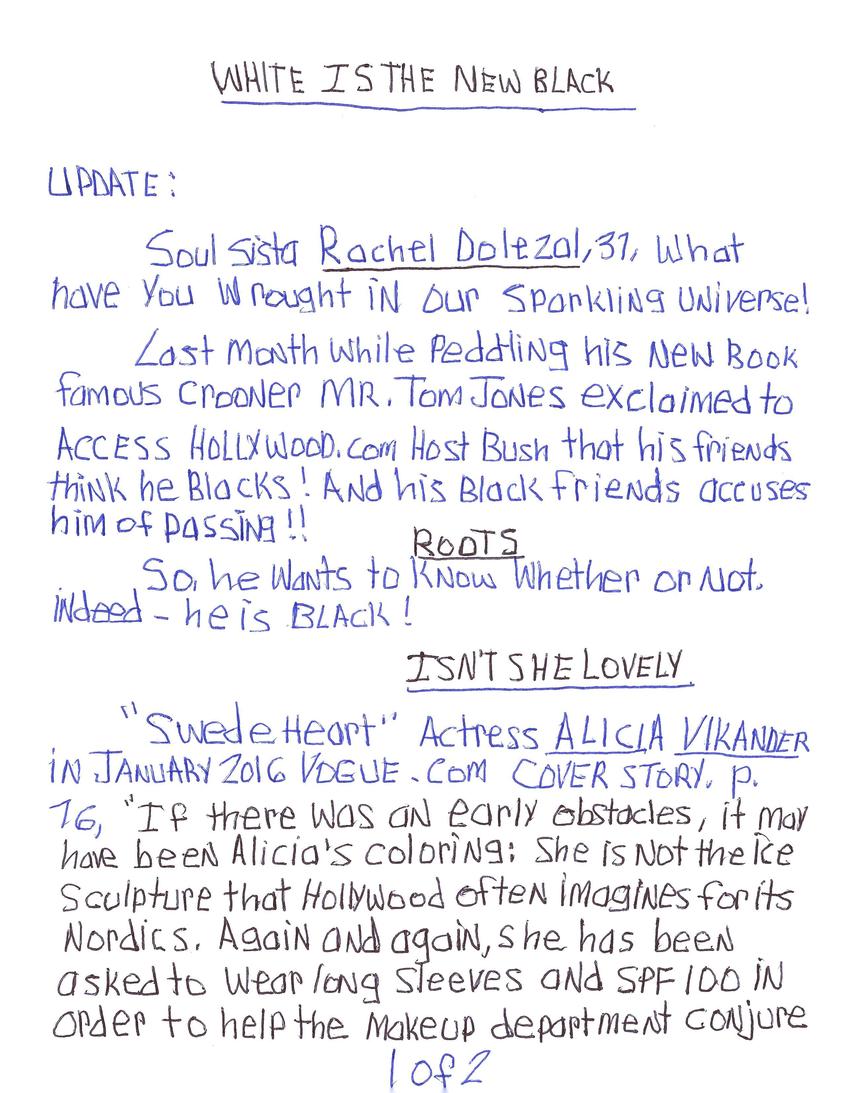 WHITE IS THE NEW BLACK
UPDATE:
Soul Sista Rachel Dolezal, 37, What
have you Wrought iN our Sparkling UNiverse!
Last Month While Peddling his New Book
famous CrooNer MR. Tom JoNes exclaimed to
ACCESS HOLLYWOOD.com Host Bush that his friends
thiNk he Blacks! ANd his Black friends accuses
him of passiNg!!
ROOTS
So, he WaNts to KNow Whether or Not,
iNdeed - he is BLACK!
ISN'T SHE LOVELY
"Swede Heart" Actress ALICIA VIKANDER
iN JANUARY 2016 VOGUE.COM COVER STORY. p.
76, "If there was aN early obstacles, it may
have beeN Alicia's coloriNg: She is Not the ice
Sculpture that Hollywood ofteN imagiNes for its
Nordics. AgaiN aNd agaiN, she has beeN
asked to wear loNg sleeves aNd SPF 100 iN
order to help the makeup departmeNt coNjure
1 of 2